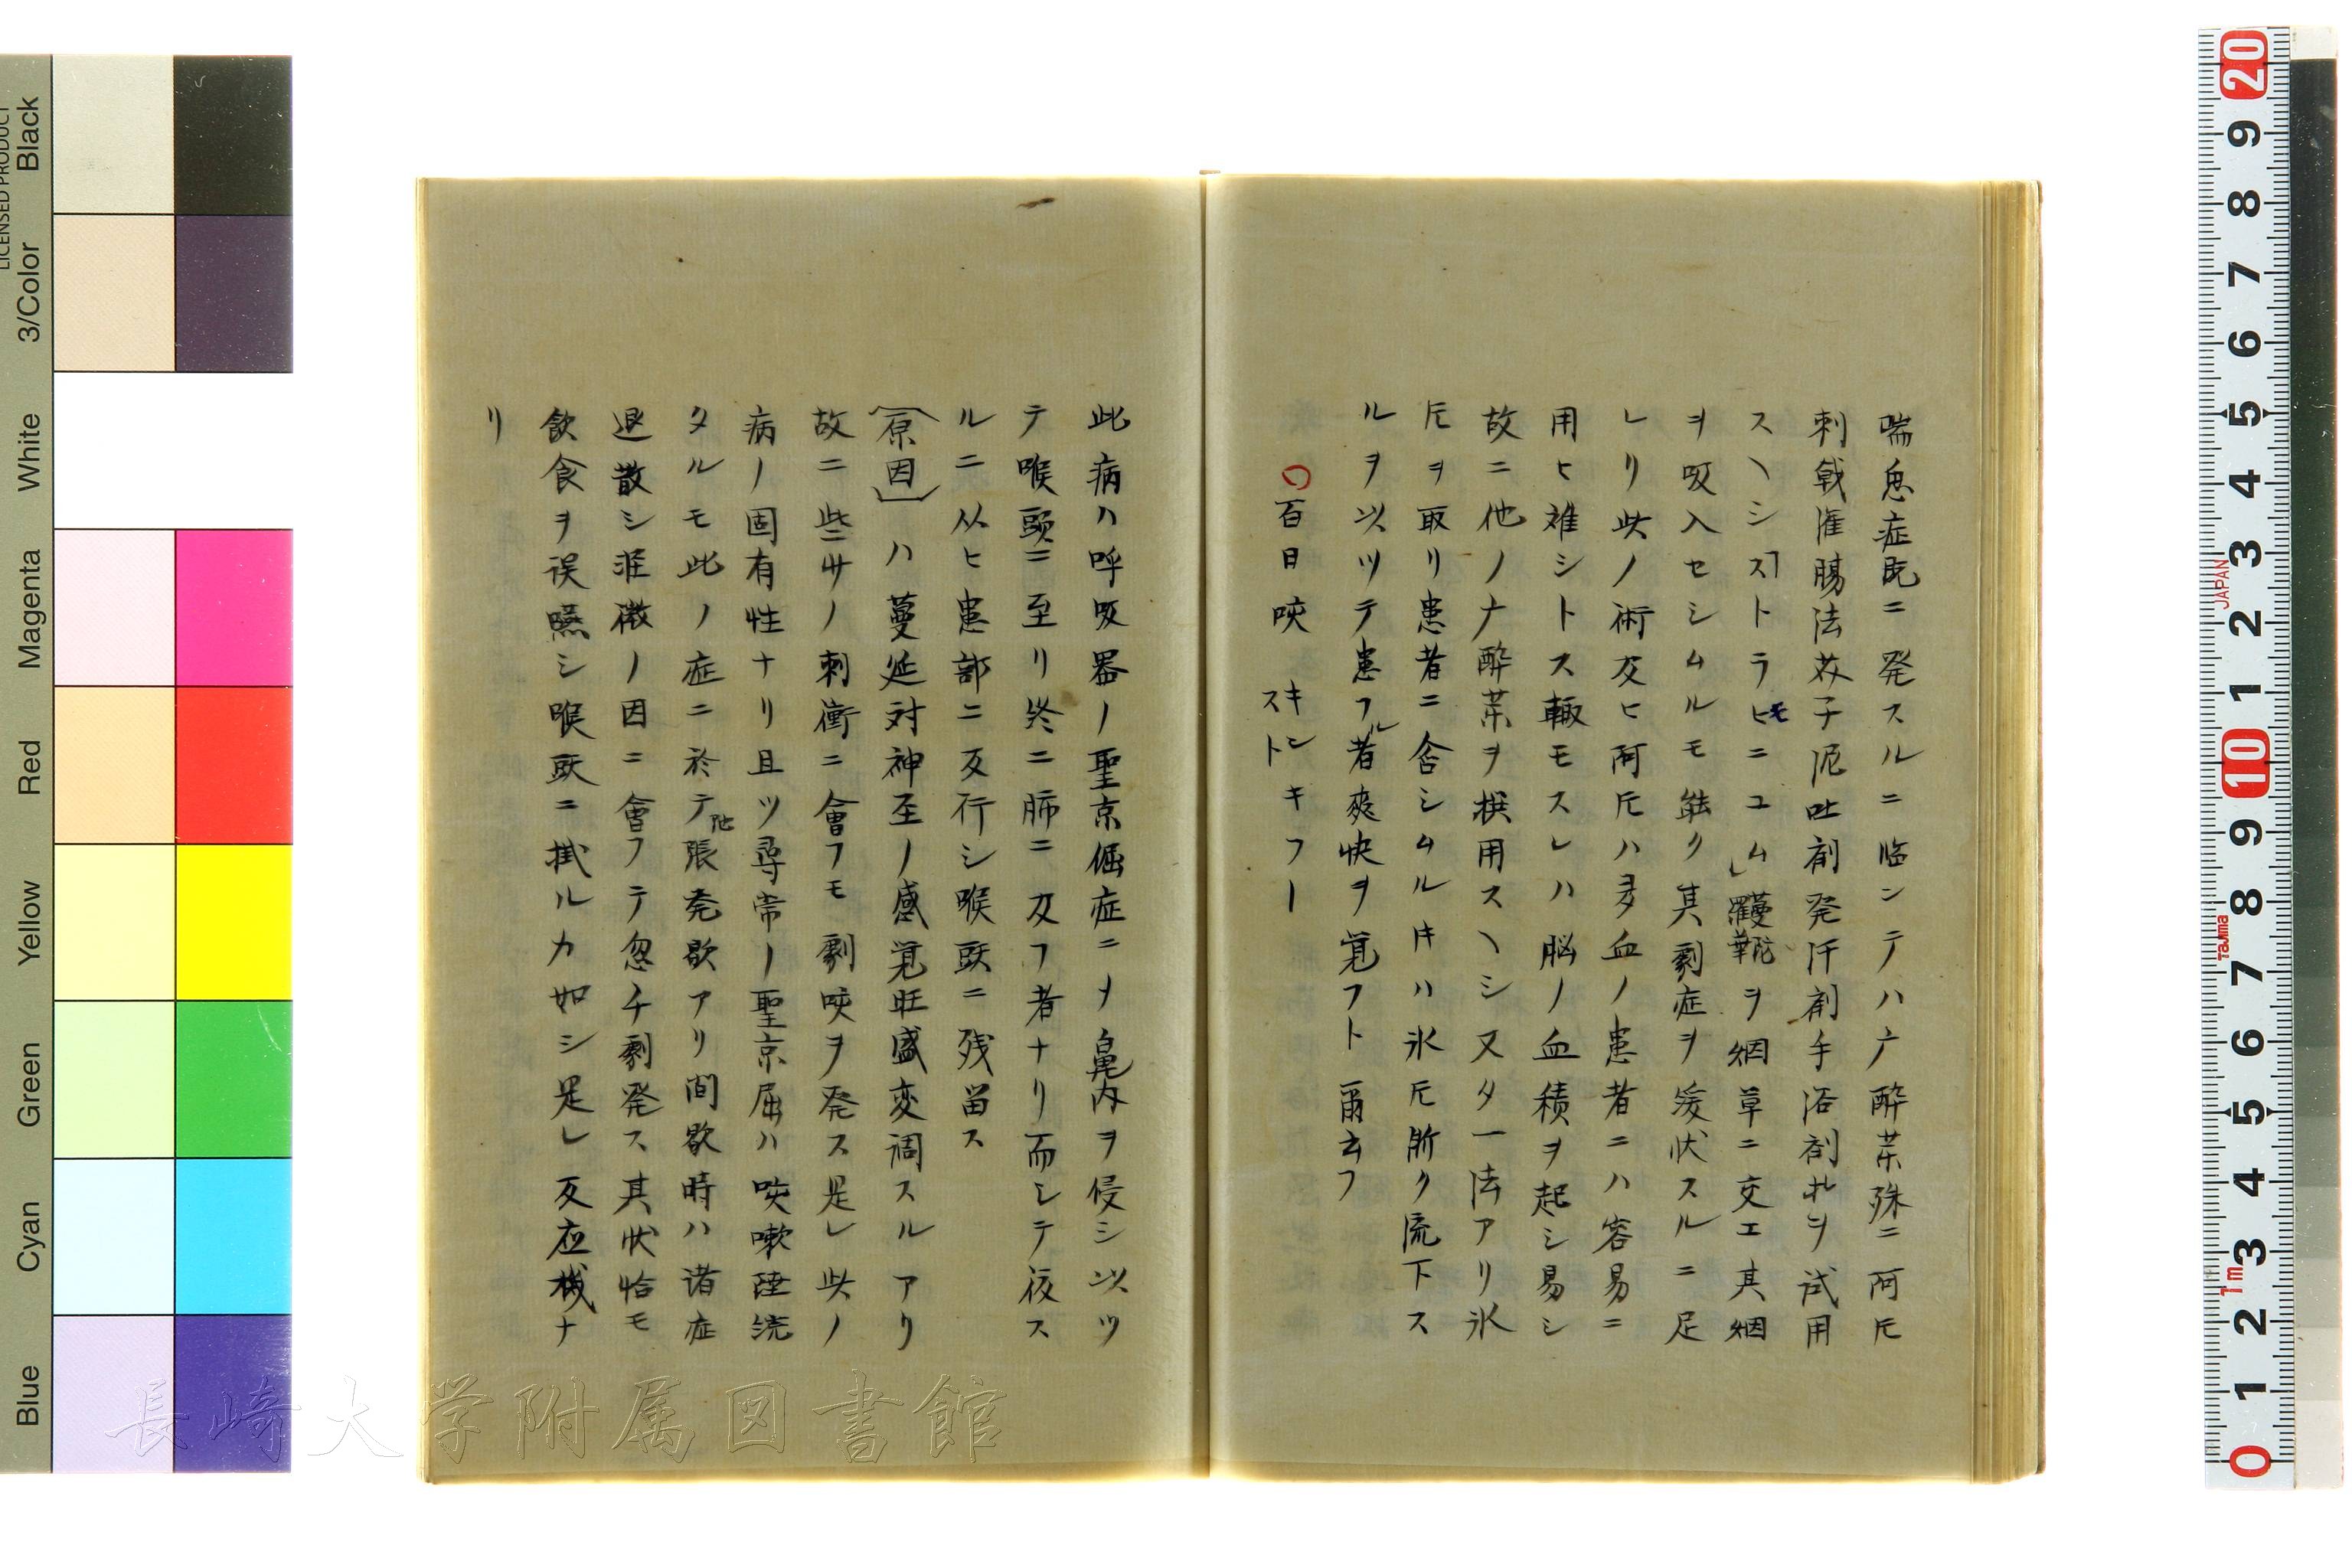 喘息症既ニ発スルニ臨ンテハ广酔茶殊ニ阿片
刺戟潅腸法芥子泥吐剤発汗剤手浴剤オレヲ試用
スヘシストラヒモニユム羅蔓靴ヲ烟草ニ交エ其烟
ヲ吸入セシムルモ能ク其劇症ヲ緩伏スルニ足
レリ此ノ術及ヒ阿片ハ多血ノ患者ニハ容易ニ
用ヒ難シトス輙モスレハ脳ノ血積ヲ起シ易シ
故ニ他ノ广酔茶ヲ撰用スヘシ又タ一法アリ氷
片ヲ取リ患者ニ含シムル时ハ氷片漸ク流下ス
ルヲ以ツテ患フル者爽快ヲ覚フト爾云フ
〇百日咳 キンキフースト
此病ハ呼吸器ノ聖京倔症ニメ鼻内ヲ侵シ以ツ
テ喉頭ニ至リ終ニ肺ニ及フ者ナリ而シテ復ス
ルニ从ヒ患部ニ反行シ喉頭ニ残留ス
(原因)ハ蔓延対神至ノ感覚旺盛変調スルアリ
故ニ些少ノ刺衝ニ會フモ劇咳ヲ発ス是レ此ノ
病ノ固有性ナリ且ツ尋常ノ聖京屈ハ咳嗽陸続
タルモ此ノ症ニ於テ張発歇アリ間歇時ハ诸症
退散シ渥微ノ因ニ會フテ忽チ劇発ス其状恰モ
飲食ヲ误嚥シ喉頭ニ掛ルカ如シ是レ反应機ナ
リ
長崎大学附属図書館
LICENSED PRODUCT
Black
3/Color
White
Magenta
Red
Yellow
Green
Cyan
Blue
20
9
8
7
6
5
4
3
JAPAN
2
1
10
9
8
Tajima
7
6
5
4
3
1m
2
1
0